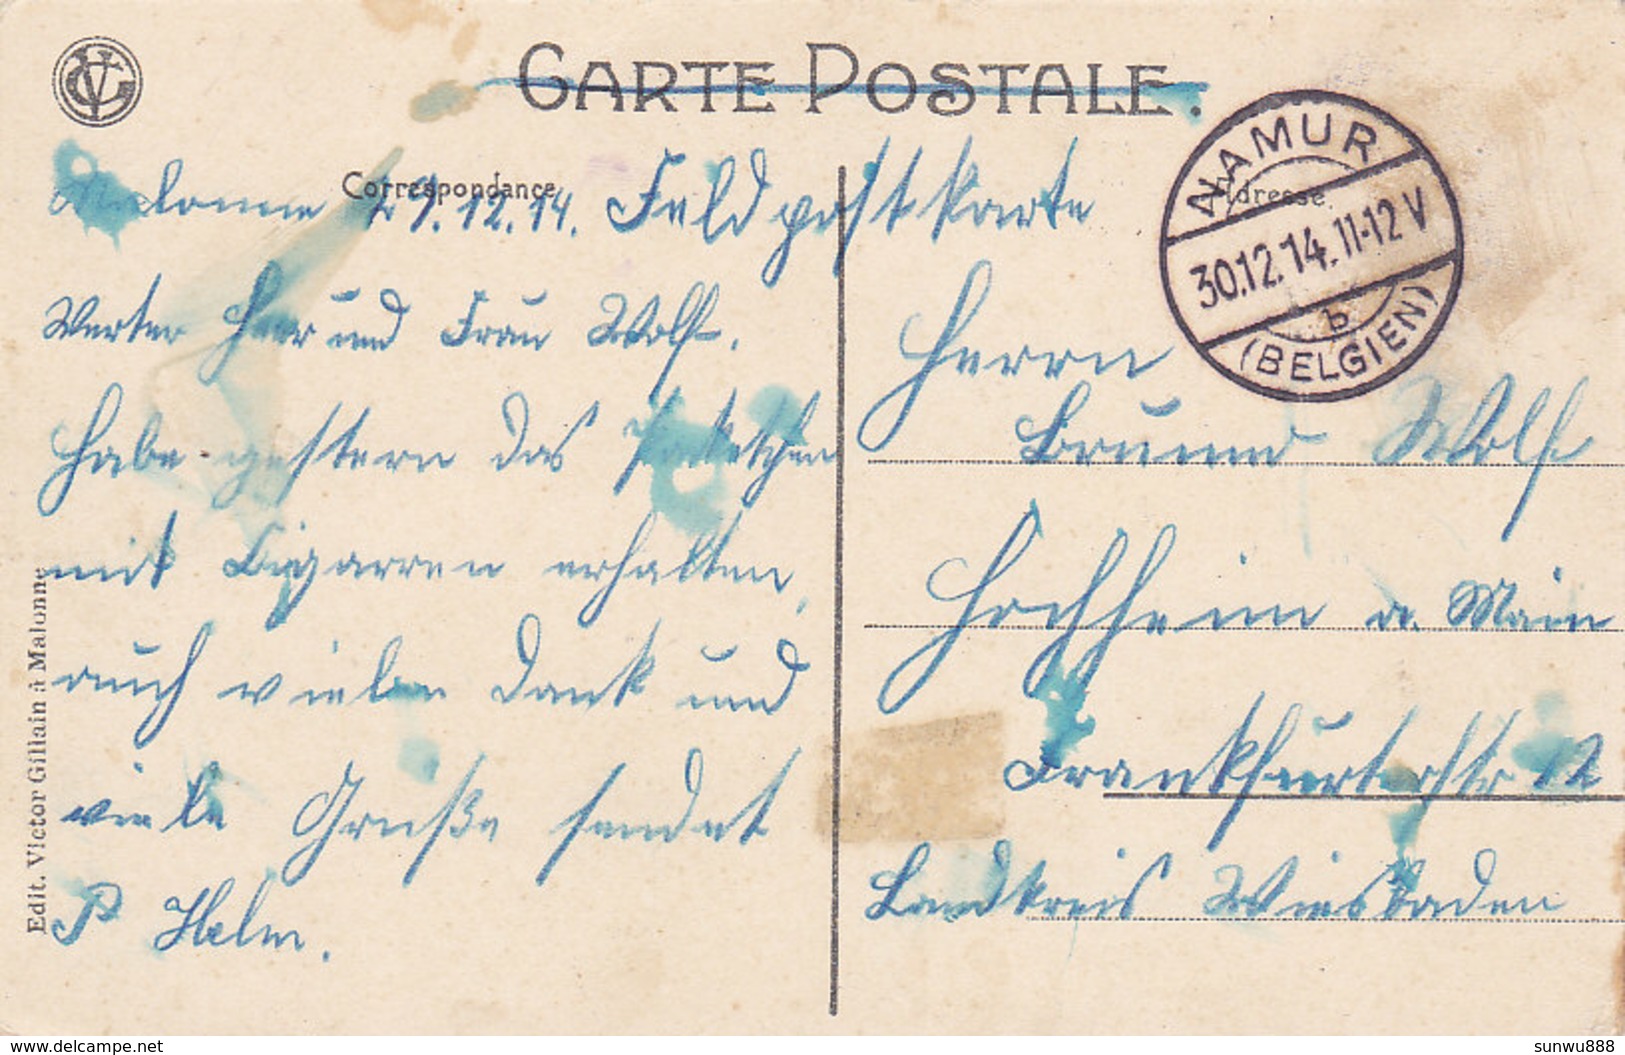 CARTE POSTALE.
Correspondance
Adresse.
NAMUR
30.12.14. 11-12 V
b
(BELGIEN)
Malonne 29.12.14. Feldpostkarte
Werter Herr und Frau Wolf.
Habe gestern das Paketchen
mit Cigarren erhalten,
auch vielen Dank und
viele Grüße sendet
P Helm.
Herrn
Bruno Wolf
Hochheim a. Main
Frankfurterstr 12
Landkreis Wiesbaden
Edit. Victor Gillain à Malonne
www.delcampe.net
sunwu888